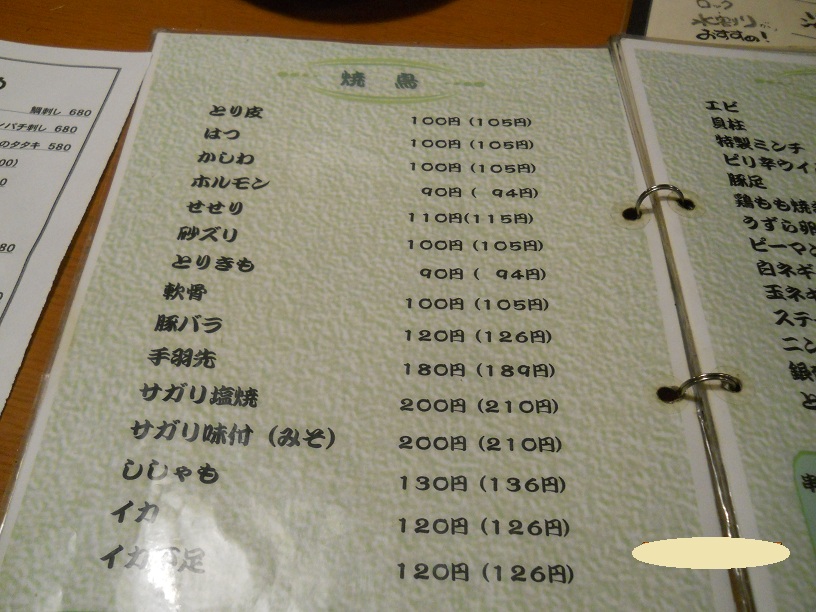 鯛刺し 680
パチ刺し 680
のタタキ 580
焼鳥
とり皮 100円（105円）
はつ 100円（105円）
かしわ 100円（105円）
ホルモン 90円（ 94円）
せせり 110円(115円)
砂ズリ 100円（105円）
とりきも 90円（ 94円）
軟骨 100円（105円）
豚バラ 120円（126円）
手羽先 180円（189円）
サガリ塩焼 200円（210円）
サガリ味付（みそ） 200円（210円）
ししゃも 130円（136円）
イカ 120円（126円）
イカ下足 120円（126円）
ロック
水割り
おすすめ!
エビ
貝柱
特製ミンチ
ピリ辛ウイ
豚足
鶏もも焼き
うずら卵
ピーマン
白ネギ
玉ネギ
ステー
ニン
銀
と
串